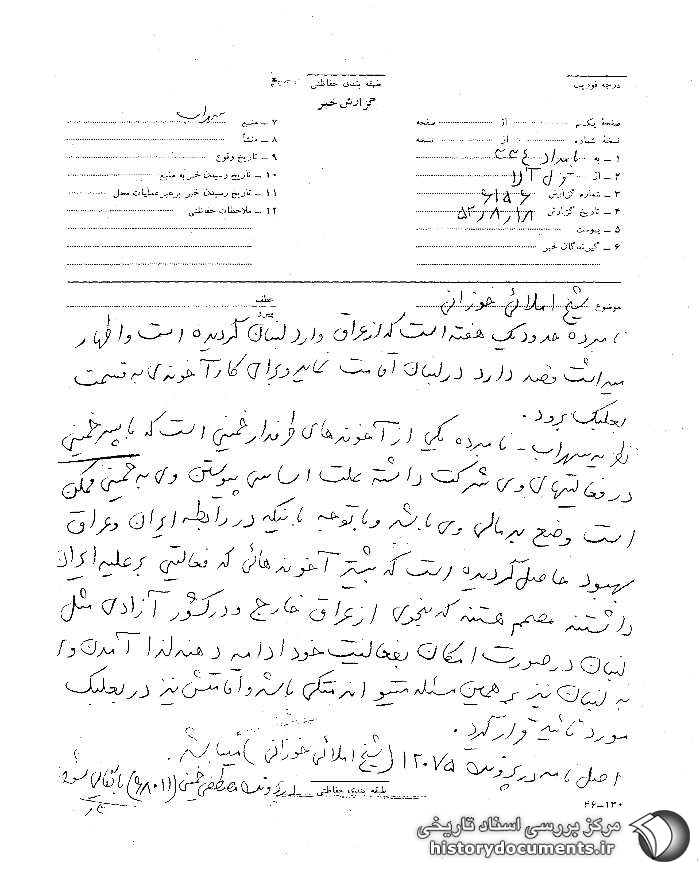 درجه فوریت
طبقه بندی حفاظتی
گزارش خبر
صفحهٔ یکم از صفحه
نسخهٔ شماره از نسخه
۱ – به بامداد ۳۳۴
۲ – از
۳ – شماره گزارش ۶۱۵۰۶
۴ – تاریخ گزارش ۵۳/۸/۱۸
۵ – پیوست
۶ – گیرندگان خبر
۷ – منبع سهراب
۸ – منشأ
۹ – تاریخ وقوع
۱۰ – تاریخ رسیدن خبر به منبع
۱۱ – تاریخ رسیدن خبر برهبر عملیات محل
۱۲ – ملاحظات حفاظتی
موضوع شیخ املائی خوزانی
عطف
پیرو
نامبرده حدود یک هفته است که از عراق وارد لبنان گردیده است و اظهار
میداشت قصد دارد در لبنان اقامت نماید و برای کار آخوندی به قسمت
بعلبک برود.
نظریه سهراب – نامبرده یکی از آخوندهای طرفدار خمینی است که با پسر خمینی
در فعالیتهای وی شرکت داشته علت اساسی پیوستن وی به خمینی ممکن
است وضع بد مالی وی باشد و با توجه باینکه در رابطه ایران و عراق
بهبود حاصل گردیده است که بیشتر آخوندهائی که فعالیتی بر علیه ایران
داشتند مصمم هستند که بنحوی از عراق خارج و در کشور آزادی مثل
لبنان در صورت امکان بفعالیت خود ادامه دهند لذا آمدن وی
به لبنان نیز بر همین مسئله میتواند متکی باشد و اقامتش نیز در بعلبک
مورد تائید قرار گیرد.
اصل نامه در پرونده ۱۲۰۷۵ (شیخ املائی خوزانی) میباشد.
در پرونده مصطفی خمینی (۶۸۰۱۱) بایگانی شود
طبقه بندی حفاظتی
۴۶–۱۳۰
مرکز بررسی اسناد تاریخی
historydocuments.ir